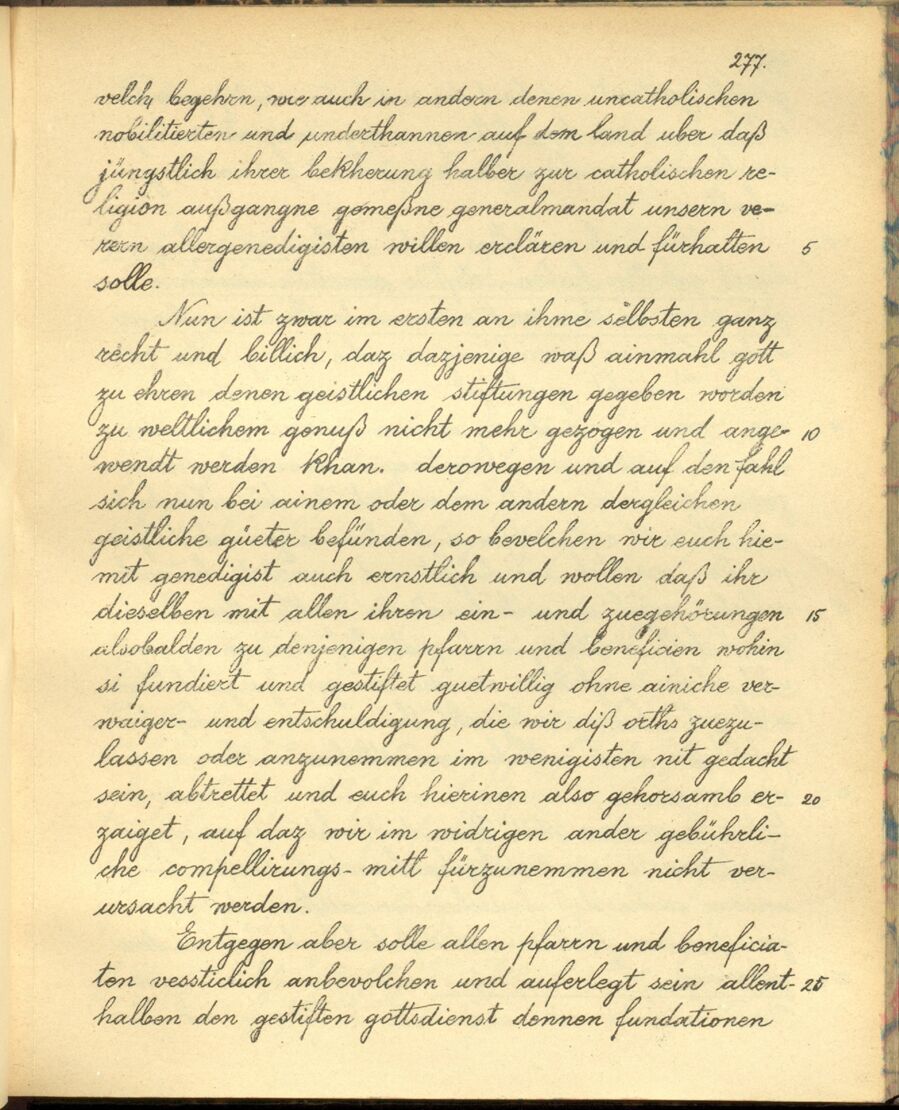 277.
welch begehrn, wie auch in andern denen uncatholischen
nobilitierten und underthannen auf dem land uber daß
jüngstlich ihrer bekherung halber zur catholischen re-
ligion außgangne gemeßne generalmandat unsern ve-
rern allergenedigisten willen erclären und fürhalten 5
solle.
Nun ist zwar im ersten an ihme selbsten ganz
recht und billich, daz dazjenige waß ainmahl gott
zu ehren denen geistlichen stiftungen gegeben worden
zu weltlichem genuß nicht mehr gezogen und ange- 10
wendt werden khan. derowegen und auf den fahl
sich nun bei ainem oder dem andern dergleichen
geistliche güeter befünden, so bevelchen wir euch hie-
mit genedigist auch ernstlich und wollen daß ihr
dieselben mit allen ihren ein- und zuegehörungen 15
alsobalden zu denjenigen pfarrn und beneficien wohin
si fundiert und gestiftet guetwillig ohne ainiche ver-
waiger- und entschuldigung, die wir diß orths zuezu-
lassen oder anzunemmen im wenigisten nit gedacht
sein, abtrettet und euch hierinen also gehorsamb er- 20
zaiget, auf daz wir im widrigen ander gebührli-
che compellirungs- mitl fürzunemmen nicht ver-
ursacht werden.
Entgegen aber solle allen pfarrn und beneficia-
ten vessticlich anbevolchen und auferlegt sein allent- 25
halben den gestiften gottsdienst dennen fundationen